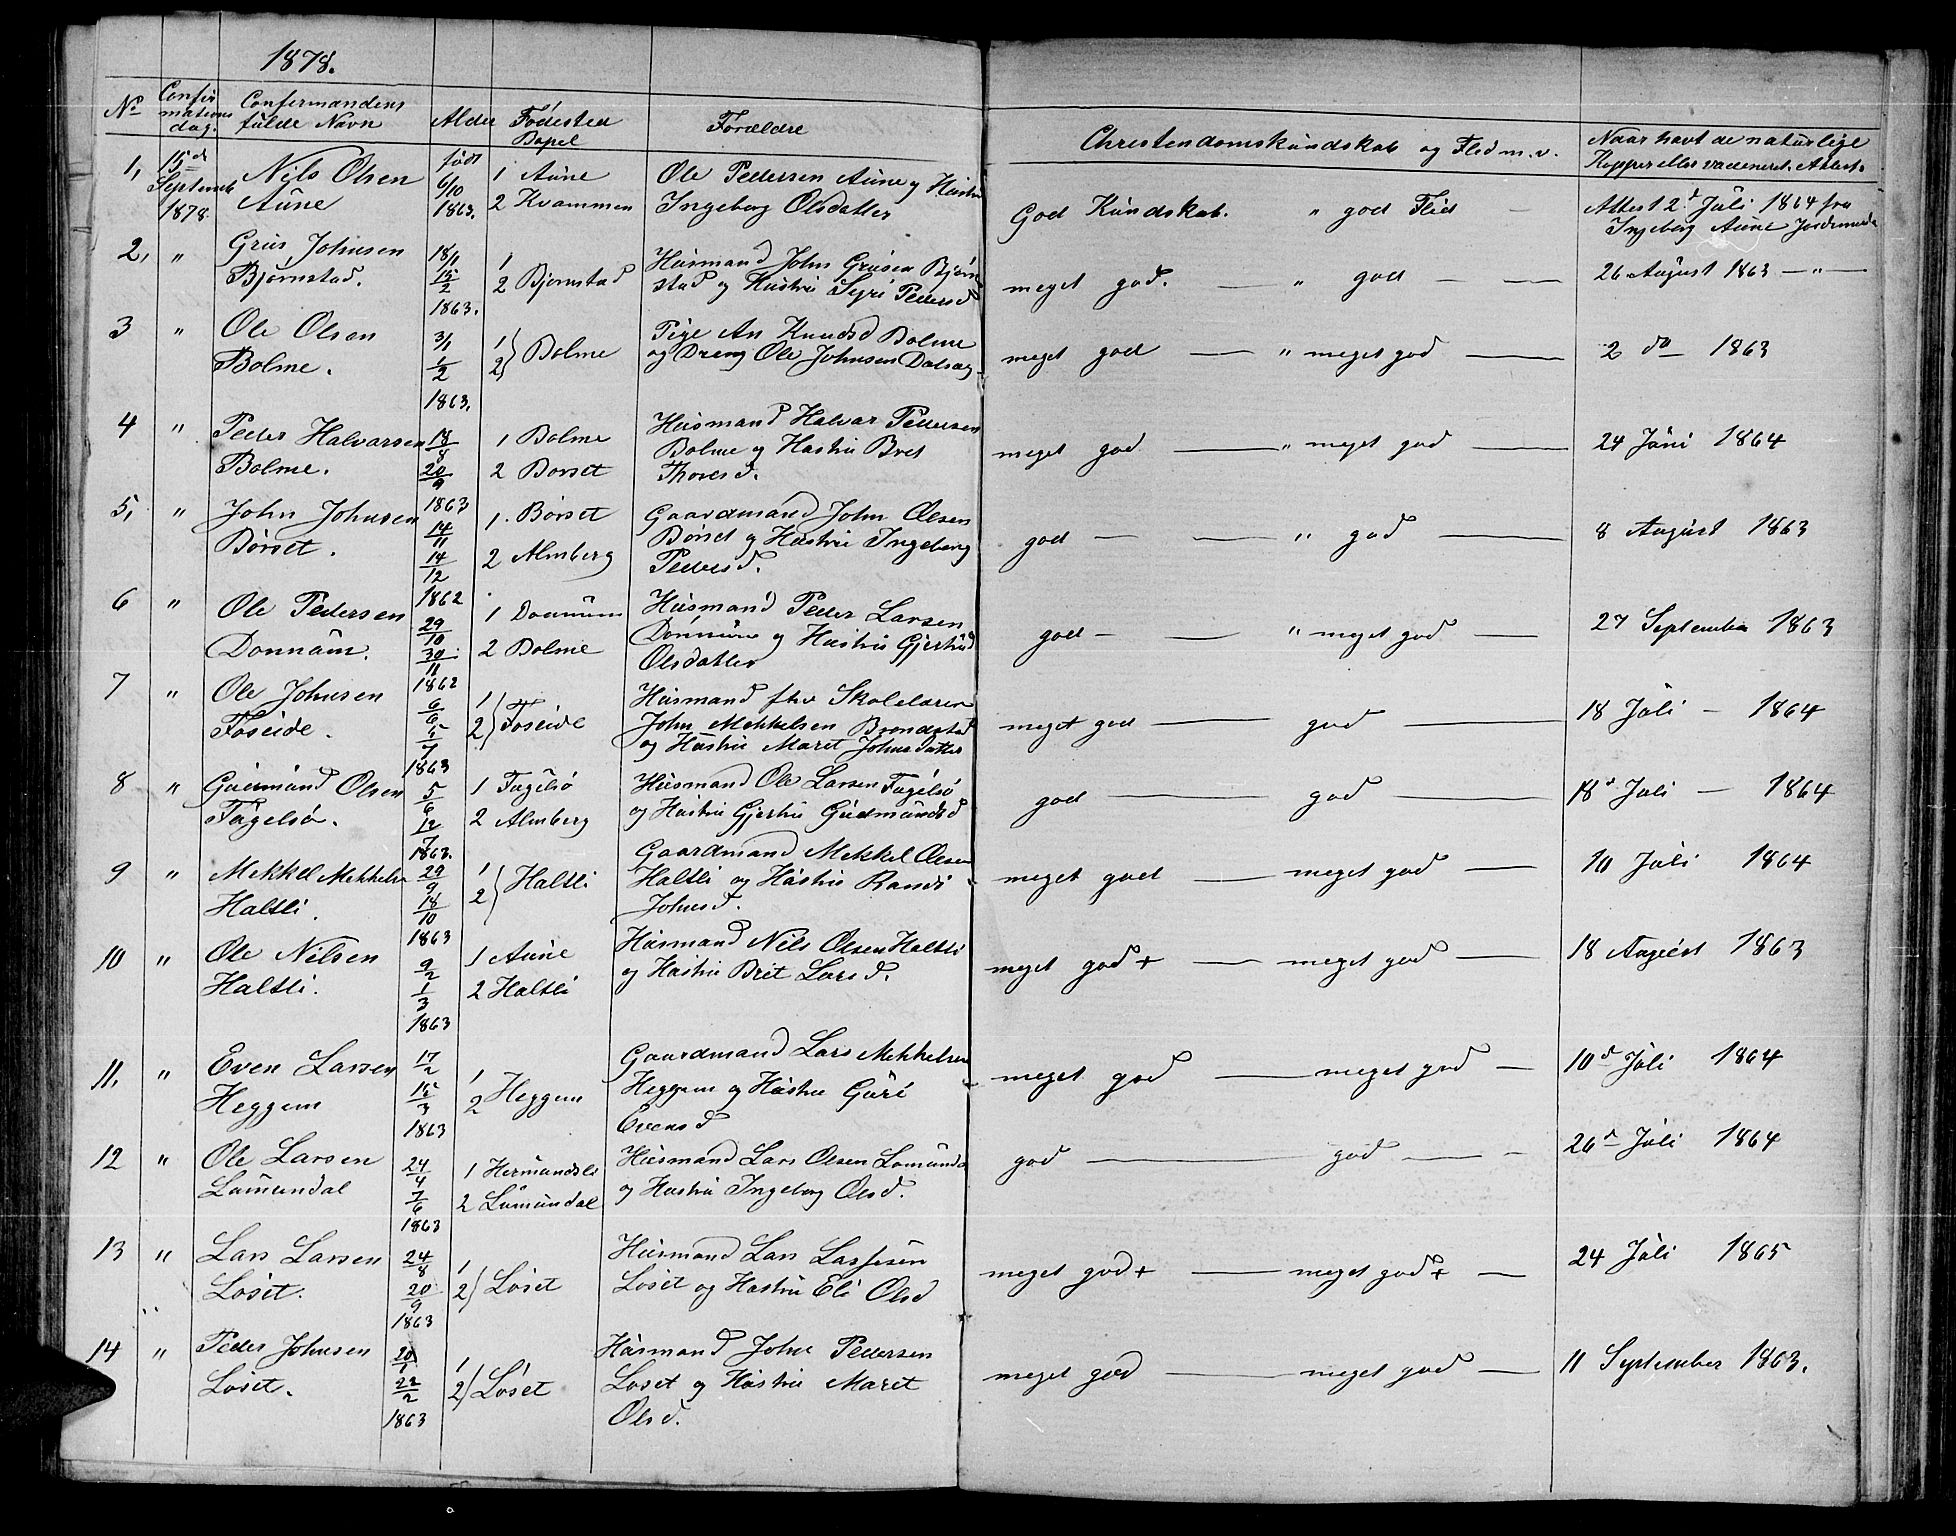 1878.
No Confirmations dag. Confermandens fulde Navn Alder Fødested Bopel Forældre Christendomskundskab og Flid m. v. Naar havt de naturlige Kopper eller vaccineret. Attest.
1, 15de September 1878 Nils Olsen Aune født 6/10 1863. 1 Aune 2 Kvammen Ole Pedersen Aune og Hustru Ingeborg Olsdatter God Kundskab. " god Flid — Attest 2d Juli 1864 fra Ingeborg Aune Jordemoder
2, " Johnsen Bjørnstad. 18/1 15/2 1863. 1 2 Bjørnstad Husmand John Bjørnstad og Hustru Pedersd meget god. — " god — — 26 August 1863 — " —
3 " Ole Olsen Bolme. 3/1 1/2 1863. 1 2 } Bolme Pige An Knudsd Bolme og Dreng Ole Johnsen meget god — " meget god — 2 do 1863
4 " Peder Halvarsen Bolme. 18/8 20/9 1863 1 Bolme 2 Børset Husmand Halvar Pedersen Bolme og Hustru Bret Thoresd. meget god — " meget god — 24 Juni 1864
5, " John Johnsen Børset. 14/11 14/12 1862 1. Børset 2 Almberg Gaardmand John Olsen Børset og Hustru Ingeborg Pedersd. god — — " god — 8 August 1863
6 " Ole Pedersen Donnum. 29/10 30/11 1862 1 Donnum 2 Bolme Husmand Peder Larsen Donnum og Hustru Gjertrud Olsdatter god — — " meget god — 27 September 1863
7 " Ole Johnsen Foseide. 6/6 5/7 1863 1 2 } Foseide Husmand fhv Skolelærer John Mekkelsen og Hustru Maret Johnsdatter meget god — god — 18 Juli — 1864
8 " Gudmund Olsen Fagelsø. 5/6 12/7 1863. 1 Fugelsø 2 Almberg Husmand Ole Larsen Fugelsø og Hustru Gjertru Gudmundsd god — god — 18d Juli — 1864
9 " Mekkel Mekkelsen Haltli. 29/9 18/10 1863 1 2 } Haltli Gaardmand Mekkel Olsen Haltli og Hustru Randi Johnsd. meget god — meget god — 10 Juli 1864
10 " Ole Nilsen Haltli. 9/2 1/3 1863 1 Aune 2 Haltli Husmand Nils Olsen Haltli og Hustru Brit Larsd. meget god + — meget god — 18 August 1863
11. " Even Larsen Heggem 17/2 15/3 1863 1 2 Heggem Gaardmand Lars Mekkelsen Heggem og Hustru Guri Evensd meget god — meget god — 10d Juli 1864
12 " Ole Larsen Lumundal 24/4 7/6 1863 1 Hermundsli 2 Lumundal Husmand Lars Olsen Lomunda og Hustru Ingeborg Olsd. god — god — - 26d Juli 1864
13 " Lars Larsen Løset. 24/8 20/9 1863 1 2) Løset Husmand Lars Larssen Løset og Hustru Eli Olsd meget god + — meget god + — 24 Juli 1865
14 " Peder Johnsen Løset. 20/1 22/2 1863 1 2) Løset Husmand John Pedersen Løset og Hustru Maret Olsd. meget god — meget god — 11 September 1863.